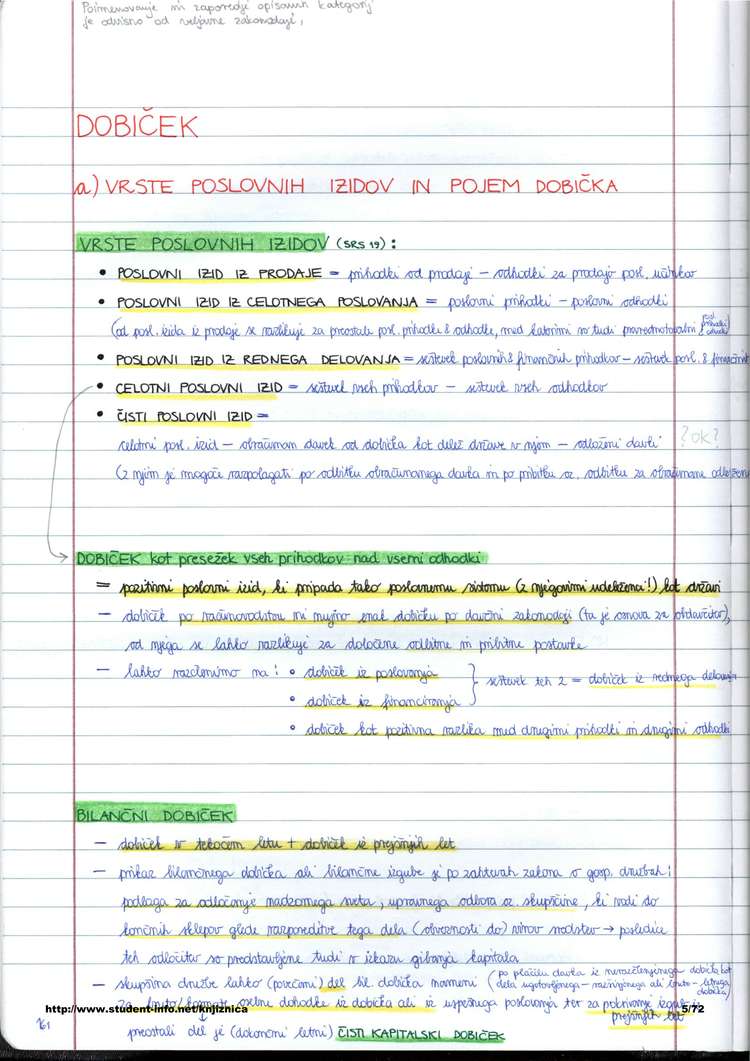 Poimenovanje in zaporedje opisanih kategorij
je odvisno od veljavne zakonodaje,
DOBIČEK
a) VRSTE POSLOVNIH IZIDOV IN POJEM DOBIČKA
VRSTE POSLOVNIH IZIDOV (SRS 19):
• POSLOVNI IZID IZ PRODAJE = prihodki od prodaje – odhodki za prodajo posl. učinkov
• POSLOVNI IZID IZ CELOTNEGA POSLOVANJA = poslovni prihodki – poslovni odhodki
(od posl. izida iz prodaje se razlikuje za preostale posl. prihodke & odhodke, med katerimi so tudi prevrednotovalni posl. prihodki & odhodki)
• POSLOVNI IZID IZ REDNEGA DELOVANJA = seštevek poslovnih & finančnih prihodkov – seštevek posl. & finančnih
• CELOTNI POSLOVNI IZID = seštevek vseh prihodkov – seštevek vseh odhodkov
• ČISTI POSLOVNI IZID =
celotni posl. izid – obračunan davek od dobička kot delež države v njem – odloženi davki ?ok?
(z njim je mogoče razpolagati po odbitku obračunanega davka in po pribitku oz. odbitku za obračunane odložene
DOBIČEK kot presežek vseh prihodkov nad vsemi odhodki
= pozitivni poslovni izid, ki pripada tako poslovnemu sistemu (z njegovimi udeleženci!) kot državi
– dobiček po računovodstvu ni nujno enak dobičku po davčni zakonodaji (ta je osnova za obdavčitev),
od njega se lahko razlikuje za določene odbitne in pribitne postavke
– lahko razčlenimo na: • dobiček iz poslovanja } seštevek teh 2 = dobiček iz rednega delovanja
• dobiček iz financiranja
• dobiček kot pozitivna razlika med drugimi prihodki in drugimi odhodki
BILANČNI DOBIČEK
– dobiček v tekočem letu + dobiček iz prejšnjih let
– prikaz bilančnega dobička ali bilančne izgube je po zahtevah zakona o gosp. družbah:
podlaga za odločanje nadzornega sveta, upravnega odbora oz. skupščine, ki vodi do
končnih sklepov glede razporeditve tega dela (obveznosti do) virov sredstev → posledice
teh odločitev so predstavljene tudi v izkazu gibanja kapitala
– skupščina družbe lahko (povečani) del bil. dobička nameni (po plačilu davka iz nerazčlenjenega dobička kot
dela ugotovljenega – razvojnega ali bruto – letnega dobička)
za bruto/kosmate osebne dohodke iz dobička ali iz uspešnega poslovanja ter za pokrivanje izgub iz prejšnjih let
http://www.student-info.net/knjiznica
5/72
preostali del je (dokončni letni) ČISTI KAPITALSKI DOBIČEK